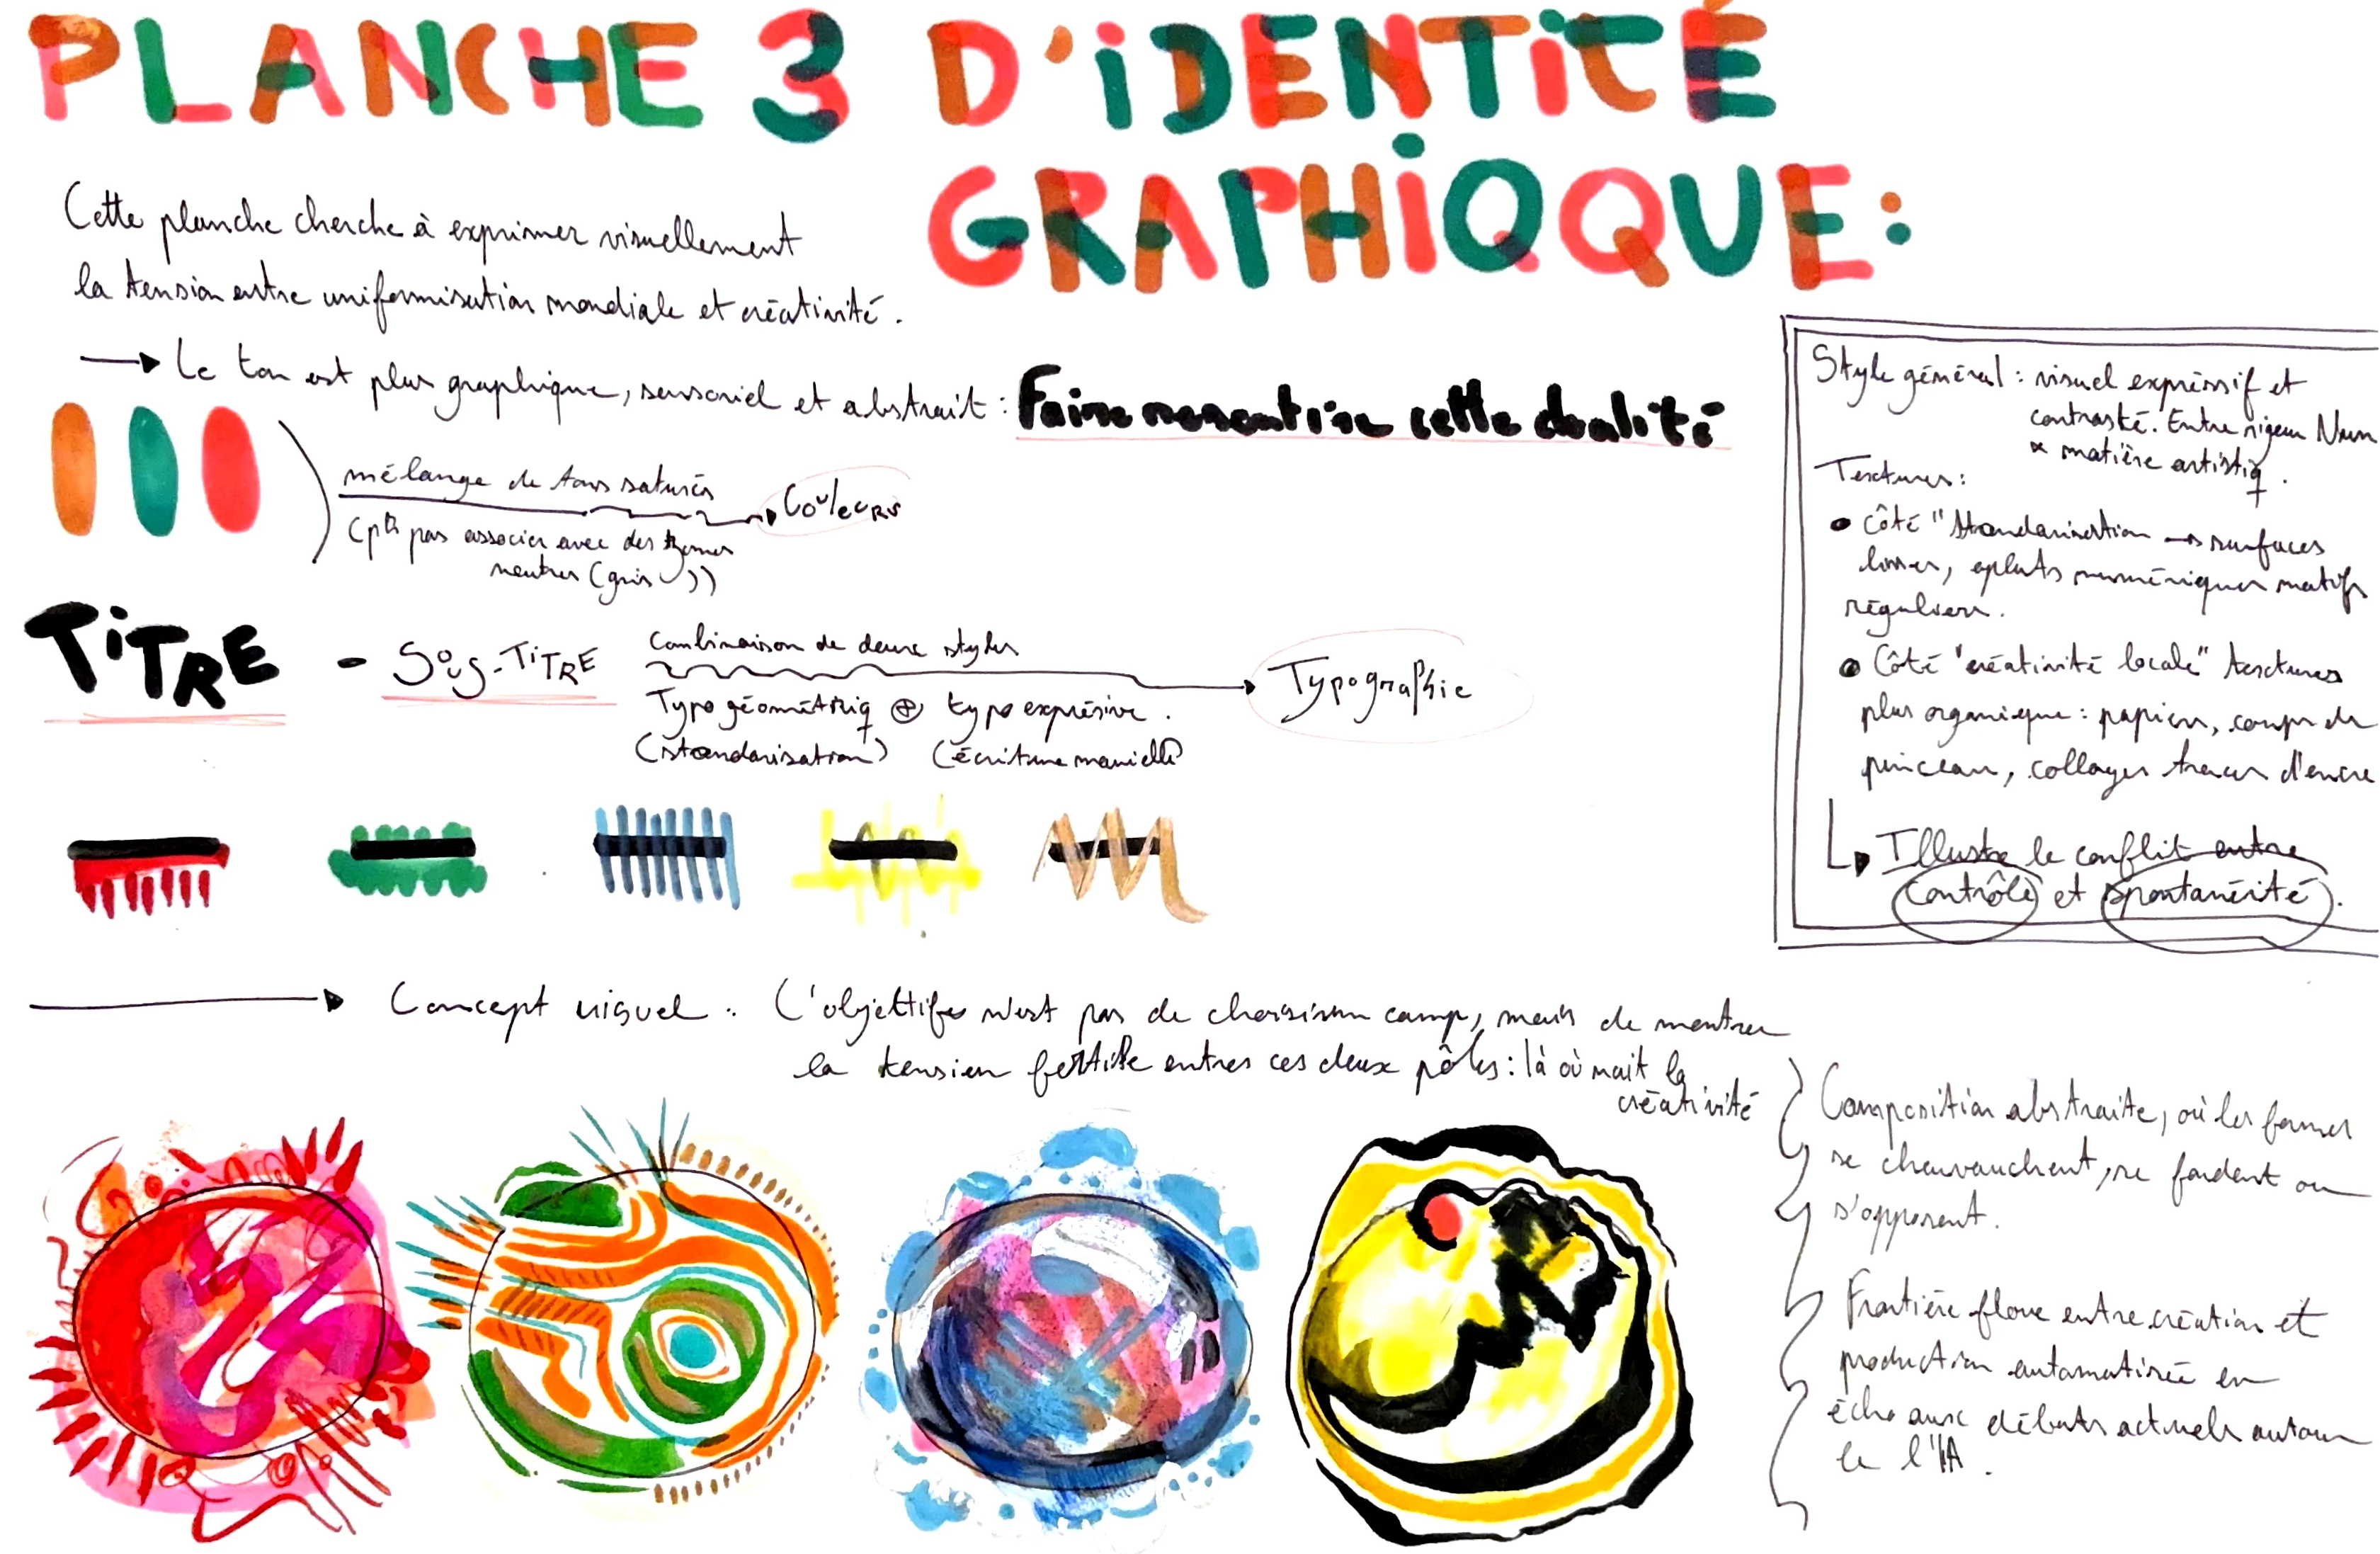 PLANCHE 3 D'iDENTiTÉ
GRAPHiQQUE:
Cette planche cherche à exprimer visuellement
la tension entre uniformisation mondiale et créativité.
Le ton est plus graphique, sensoriel et abstrait : Faire ressentire cette dualité
mélange de tons saturés
Couleurs
(pth pas associer avec des
neutres (gris))
TiTRE - Sous-TiTRE
Combinaison de deux styles
Typo géométriq ⊕ typo expressive.
(standarisation) (écriture manielle)
Typographie
Style général : visuel expressif et
contrasté. Entre rigeur Num
x matière artistiq.
Textures :
• Côté "standarisation → surfaces
lisses, aplats numériques motifs
réguliers.
• Côté "créativité locale" textures
plus organique : papiers, coups de
pinceau, collages traces d'encre
Illustre le conflit entre
contrôle et spontanéité.
Concept visuel : L'objettifs n'est pas de choisir un camp, mais de montrer
la tension fertile entres ces deux pôles : là où nait la
créativité
Composition abstraite, où les formes
se chauvauchent, se fondent ou
s'opposent.
Frontière floue entre création et
production automatisée en
écho aux débats actuels autour
de l'IA.